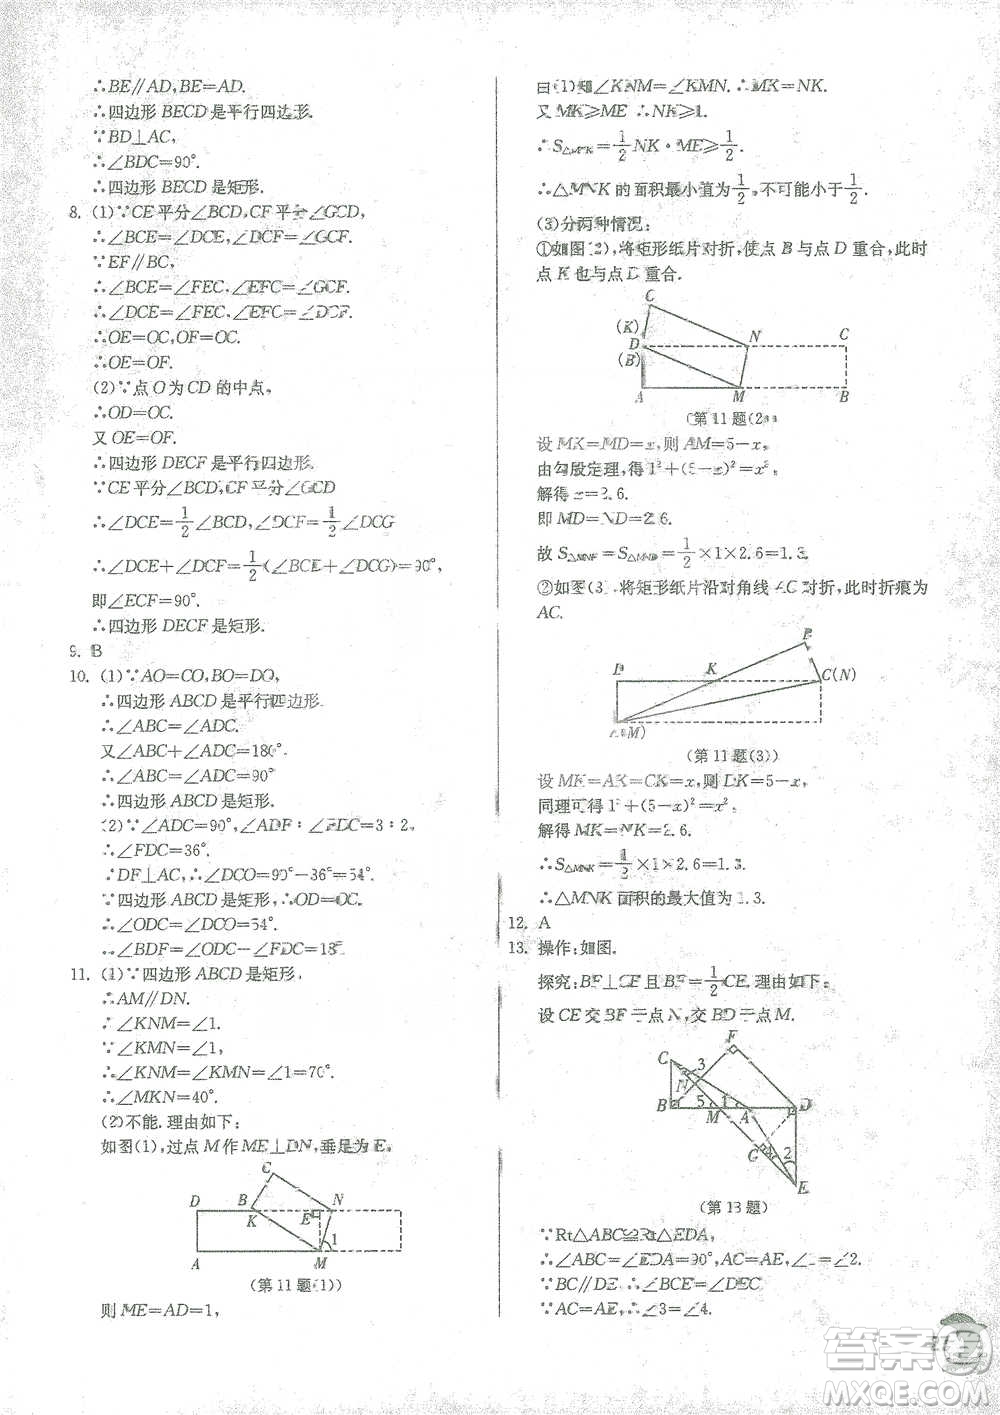 ∴BE∥AD,BE=AD.
∴四边形 BECD 是平行四边形.
∵BD⊥AC,
∴∠BDC=90°.
∴四边形 BECD 是矩形.
8. (1)∵CE 平分∠BCD,CF 平分∠GCD,
∴∠BCE=∠DCE,∠DCF=∠GCF.
∵EF∥BC,
∴∠BCE=∠FEC,∠EFC=∠GCF.
∴∠DCE=∠FEC,∠EFC=∠DCF.
∴OE=OC,OF=OC.
∴OE=OF.
(2)∵点 O 为 CD 的中点,
∴OD=OC.
又 OE=OF.
∴四边形 DECF 是平行四边形.
∵CE 平分∠BCD,CF 平分∠GCD
∴∠DCE=1/2∠BCD,∠DCF=1/2∠DCG
∴∠DCE+∠DCF=1/2(∠BCD+∠DCG)=90°,
即∠ECF=90°.
∴四边形 DECF 是矩形.
9. B
10. (1)∵AO=CO,BO=DO,
∴四边形 ABCD 是平行四边形.
∴∠ABC=∠ADC.
又∠ABC+∠ADC=180°
∴∠ABC=∠ADC=90°
∴四边形 ABCD 是矩形.
(2)∵∠ADC=90°,∠ADF∶∠FDC=3∶2,
∴∠FDC=36°.
∵DF⊥AC,∴∠DCO=90°-36°=54°.
∵四边形 ABCD 是矩形,∴OD=OC.
∴∠ODC=∠DCO=54°.
∴∠BDF=∠ODC-∠FDC=18°.
11. (1)∵四边形 ABCD 是矩形,
∴AM∥DN.
∴∠KNM=∠1.
∵∠KMN=∠1,
∴∠KNM=∠KMN=∠1=70°.
∴∠MKN=40°.
(2)不能.理由如下:
如图(1),过点 M 作 ME⊥DN,垂足为 E.
C
D B K E N
A M 1
(第 11 题(1))
则 ME=AD=1,
由(1)知∠KNM=∠KMN. ∴MK=NK.
又 MK≥ME ∴NK≥1.
∴S△MNK=1/2NK·ME≥1/2.
∴△MNK 的面积最小值为1/2,不可能小于1/2.
(3)分两种情况:
①如图(2),将矩形纸片对折,使点 B 与点 D 重合,此时
点 K 也与点 D 重合.
C
(K) N C
D
(B)
A M B
(第 11 题(2))
设 MK=MD=x,则 AM=5-x,
由勾股定理,得 1²+(5-x)²=x²,
解得 x=2.6.
即 MD=ND=2.6.
故 S△MNK=S△MND=1/2×1×2.6=1.3.
②如图(3),将矩形纸片沿对角线 AC 对折,此时折痕为
AC.
B
D K C(N)
A(M)
(第 11 题(3))
设 MK=AK=CK=x,则 DK=5-x,
同理可得 1²+(5-x)²=x²
解得 MK=NK=2.6.
∴S△MNK=1/2×1×2.6=1.3.
∴△MNK 面积的最大值为 1.3.
12. A
13. 操作:如图.
探究:BF⊥CE 且 BF=1/2CE.理由如下:
设 CE 交 BF 于点 N,交 BD 于点 M.
F
C 3
N
B 5 M 1 A D
G 4 2
E
(第 13 题)
∵Rt△ABC≌Rt△EDA,
∴∠ABC=∠EDA=90°,AC=AE,
∵BC∥DE,∴∠BCE=∠DEC
∵AC=AE,∴∠3=∠4.
答案圈
MXQE.COM